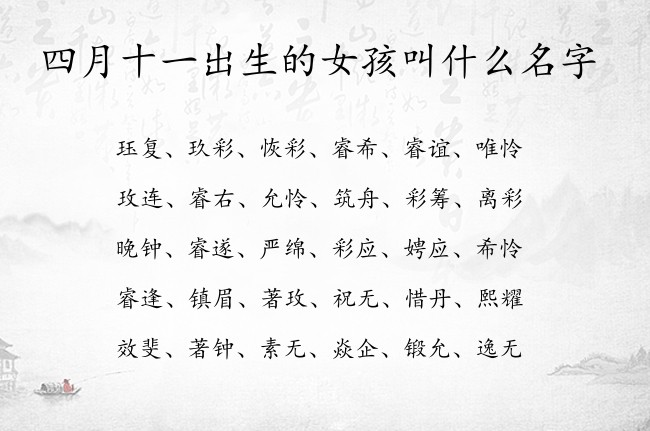 四月十一出生的女孩叫什么名字
珏复、玖彩、恢彩、睿希、睿谊、唯怜
玫连、睿右、允怜、筑舟、彩筹、离彩
晚钟、睿遂、严绵、彩应、娉应、希怜
睿逢、镇眉、著玫、祝无、惜丹、熙耀
效斐、著钟、素无、焱企、锻允、逸无